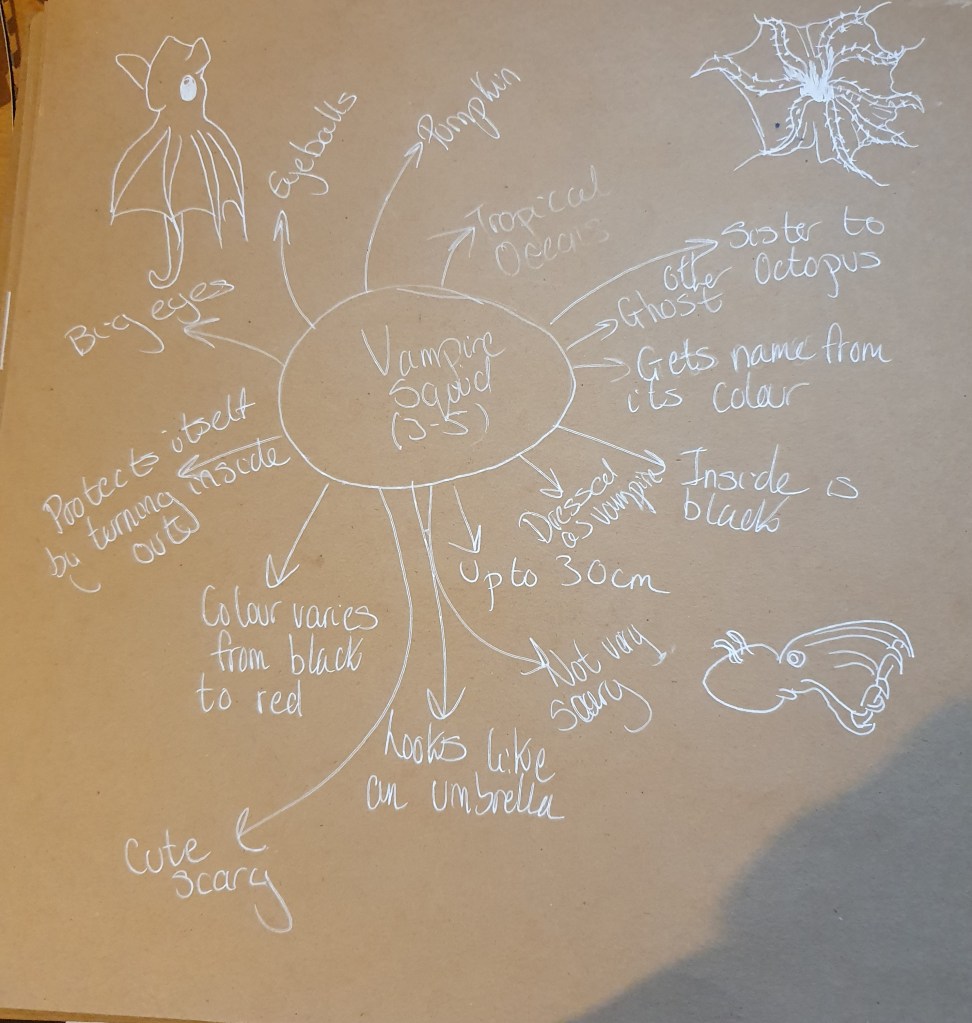 Eyeballs
Pumpkin
Tropical
Oceans
Sister to
other Octopus
Ghost
Gets name from
its colour
Big eyes
Vampire
Squid
(3-5)
Protects itself
by turning inside
out
Inside is
black
Dressed
as vampire
Up to 30cm
Colour varies
from black
to red
Not very
scary
Looks like
an umbrella
Cute
scary